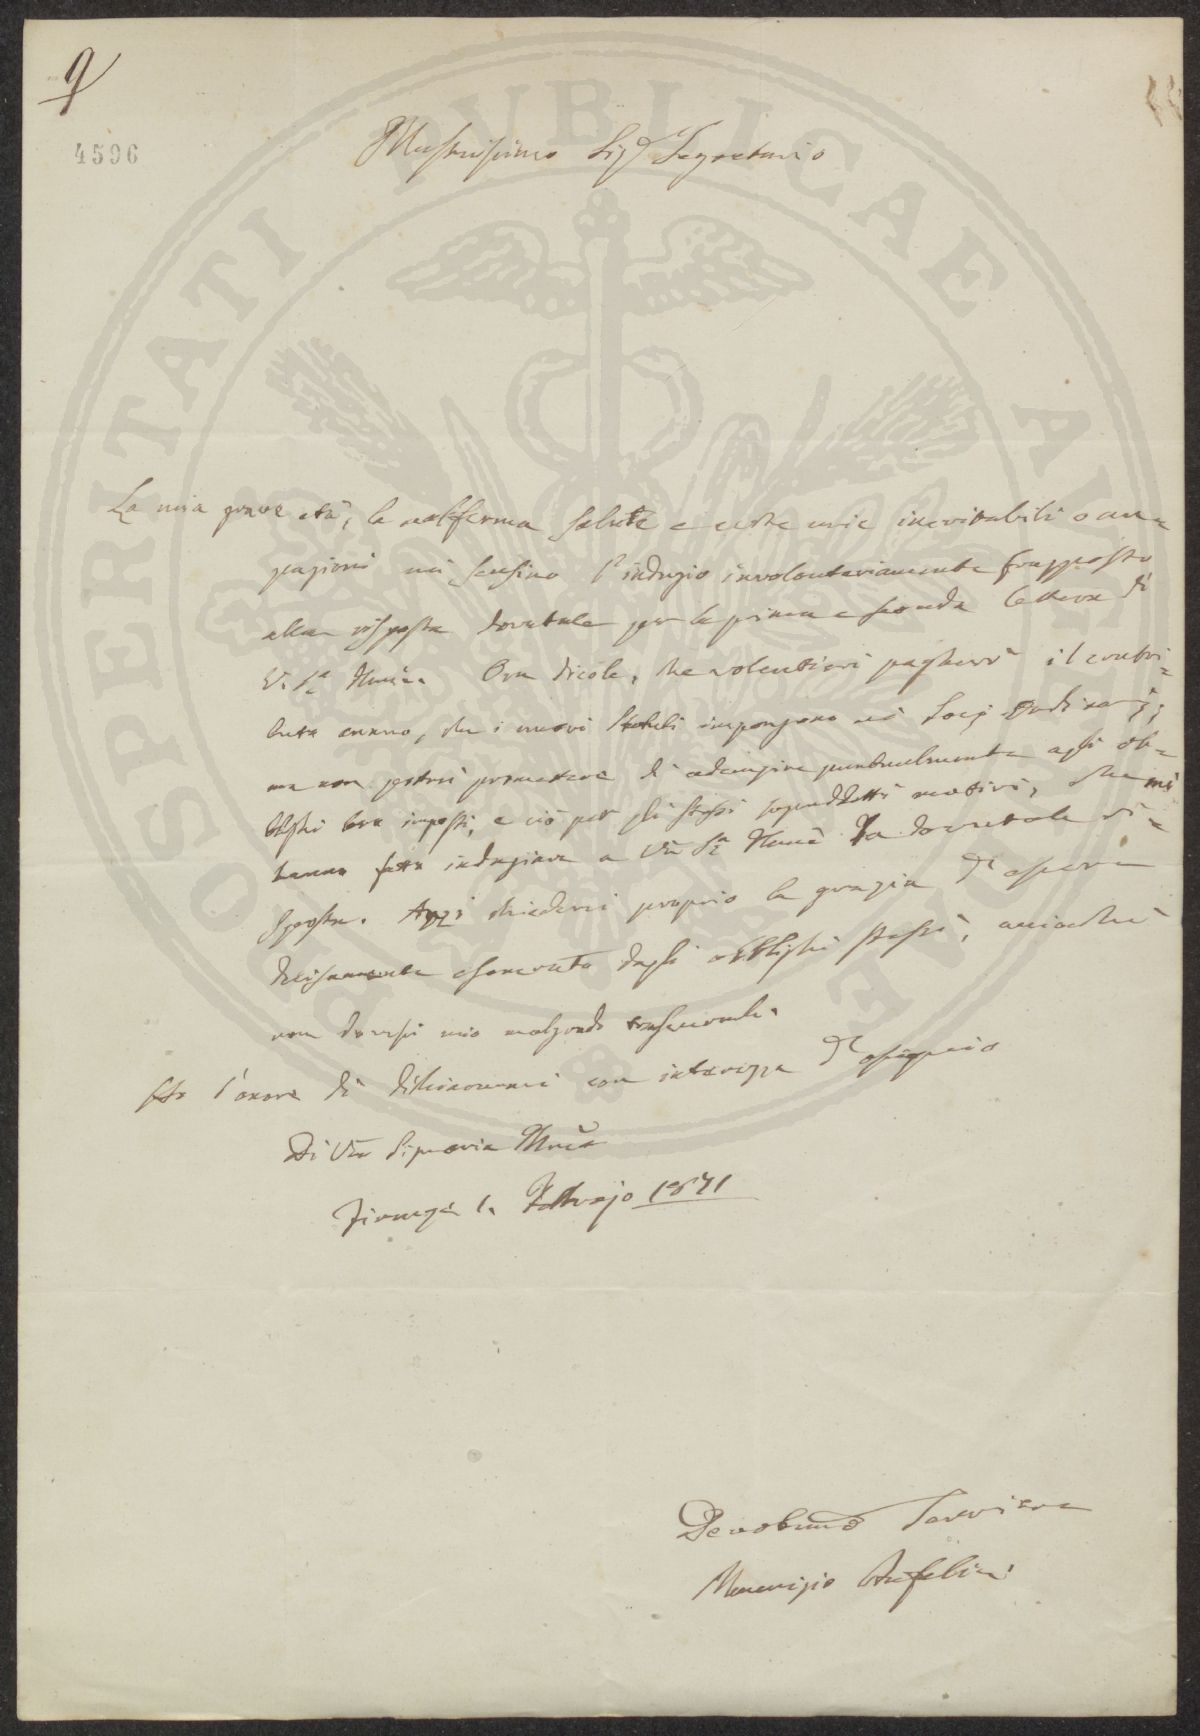 9
4596
Illustrissimo Sigr Segretario
La mia grave età, la malferma salute e certe mie inevitabili occu=
pazioni mi scusino l'indugio involontariamente frapposto
alla risposta dovutale per la prima e seconda lettera di
V. Sa Illma. Ora dicole, che volentieri pagherò il contri=
buto annuo, che i nuovi Statuti impongono ai Socj Ordinarj;
ma non potrei promettere di adempire puntualmente agli ob=
blighi loro imposti, e ciò per gli stessi sopraddetti motivi, che mi
hanno fatto indugiare a Va Sa Illma la dovutale ri=
sposta. Anzi chiederei proprio la grazia d'essere
decisamente esonerato dagli obblighi stessi, acciocchè
non dovessi mio malgrado trascurarli.
Ho l'onore di dichiararmi con interezza d'ossequio
Di Va Signoria Illma
Firenze 1. Febbrajo 1871
Devotmo Servitore